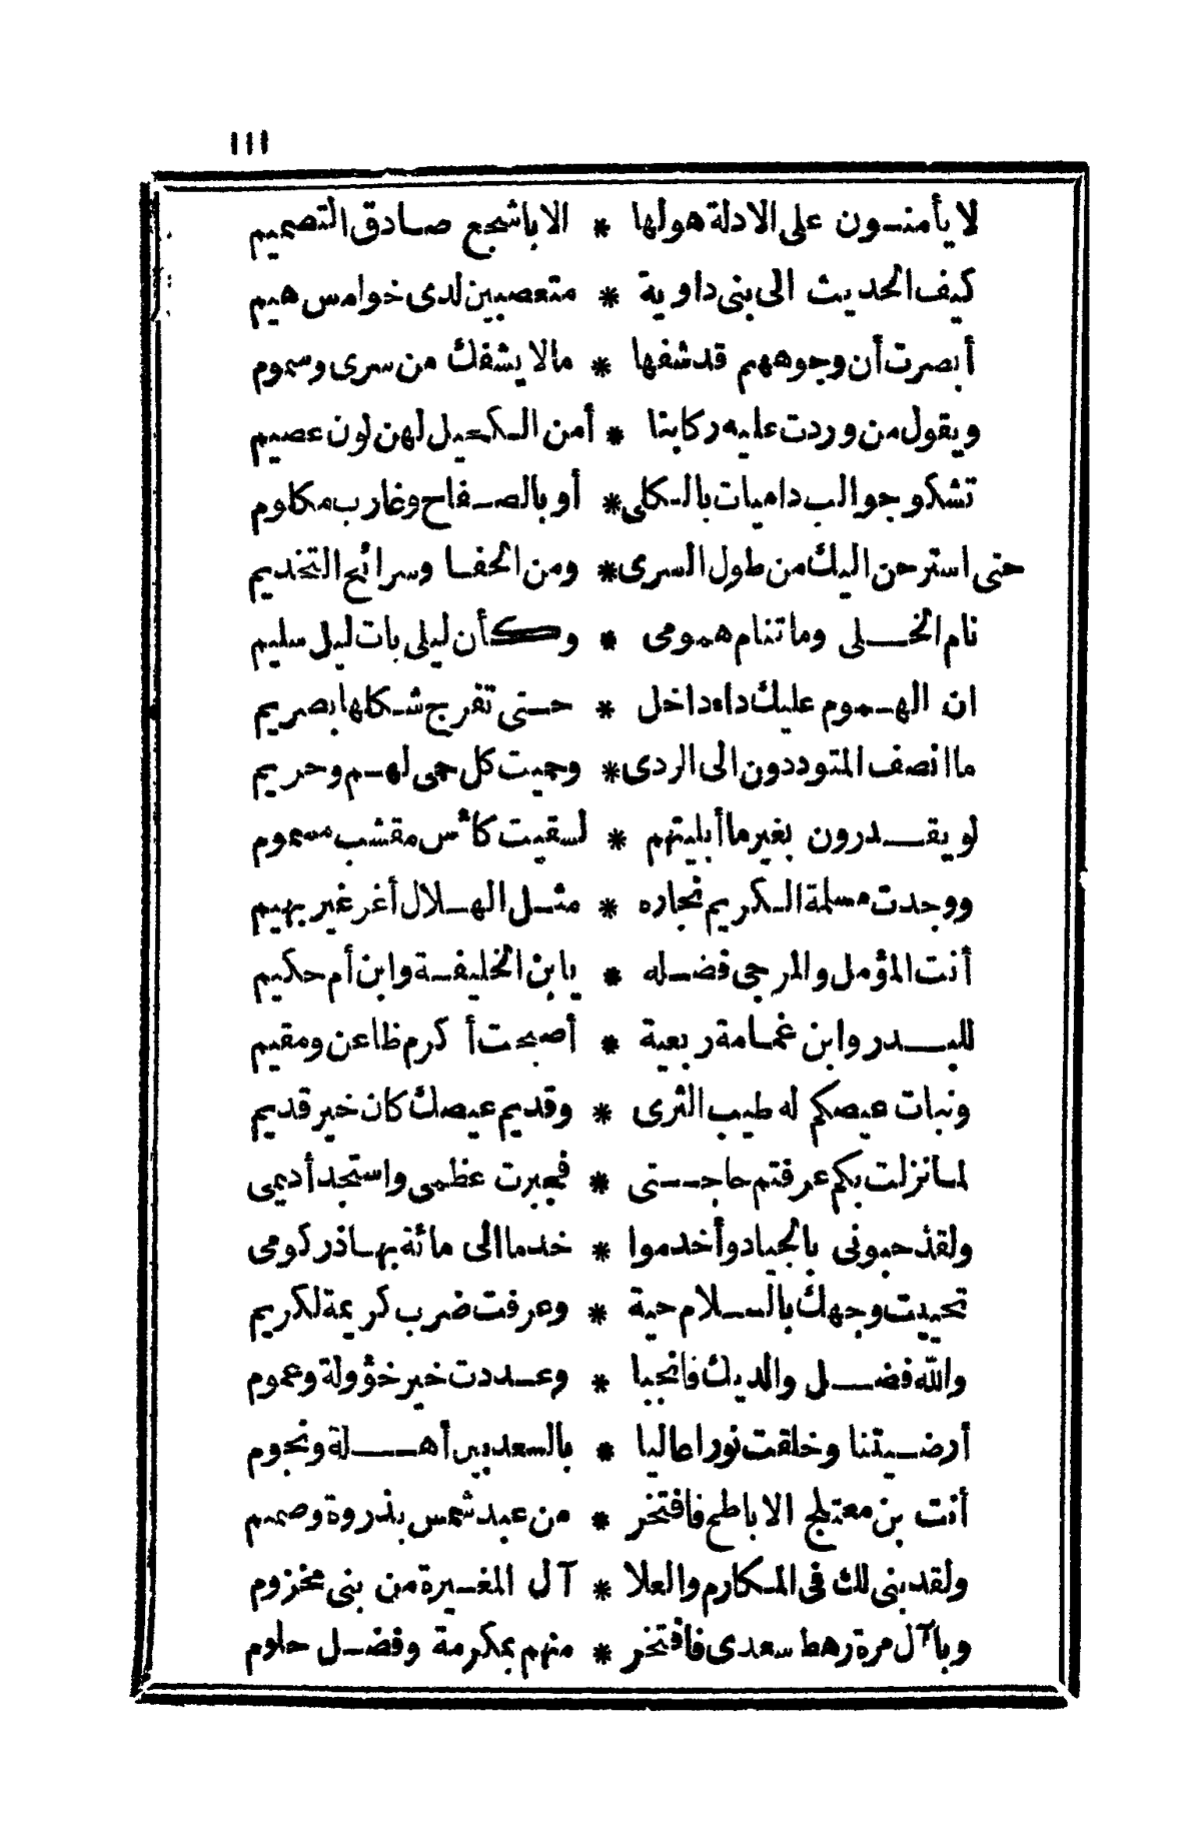 ١١١
لا يأمنون على الادلة هولها * الا باشجع صادق التصميم
كيف الحديث الى بنى داوية * متعصبين لدى خوامس هيم
أبصرت أن وجوههم قد شفها * مالا يشفك من سرى وسموم
ويقول من وردت عليه ركابنا * أمن الكحيل لهن لون عصيم
تشكو جوالب داميات بالكلى * أو بالصفاح وغارب مكلوم
حتى استرحن اليك من طول السرى * ومن الحفا وسرائح التخديم
نام الخلى وما تنام همومى * وكأن ليلى بات ليل سليم
ان الهموم عليك داء داخل * حتى تفرج شكلها بصريم
ما انصف المتوددون الى الردى * وحميت كل حمى لهم وحريم
لو يقدرون بغير ما أبليتهم * لسقيت كأس مقشب مسموم
ووجدت مسلمة الكريم نجاره * مثل الهلال أغر غير بهيم
أنت المؤمل والمرجى فضله * يا بن الخليفة وابن أم حكيم
للبدر وابن غمامة ربعية * أصبحت أكرم ظاعن ومقيم
ونبات عيصكم له طيب الثرى * وقديم عيصك كان خير قديم
لما نزلت بكم عرفتم حاجتى * فجبرت عظمى واستجد أديمى
ولقد حبونى بالجياد وأخدموا * خدما الى مائة بها ذر كومى
تحييت وجهك بالسلام حية * وعرفت ضرب كريمة لكريم
والله فضل والديك فانجبا * وعددت خير خؤولة وعموم
أرضيتنا وخلقت نورا عاليا * بالسعد بين أهلة ونجوم
أنت بن معتلج الاباطح فافتخر * من عبد شمس بذروة وصميم
ولقد بنى لك فى المكارم والعلا * آل المغيرة من بنى مخزوم
وبآل مرة رهط سعدى فافتخر * منهم بمكرمة وفضل حلوم